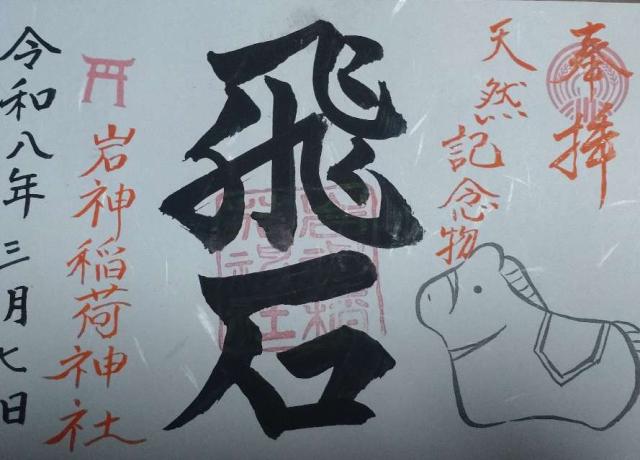 奉拝
天然記念物
飛石
岩神稲荷神社
令和八年三月七日